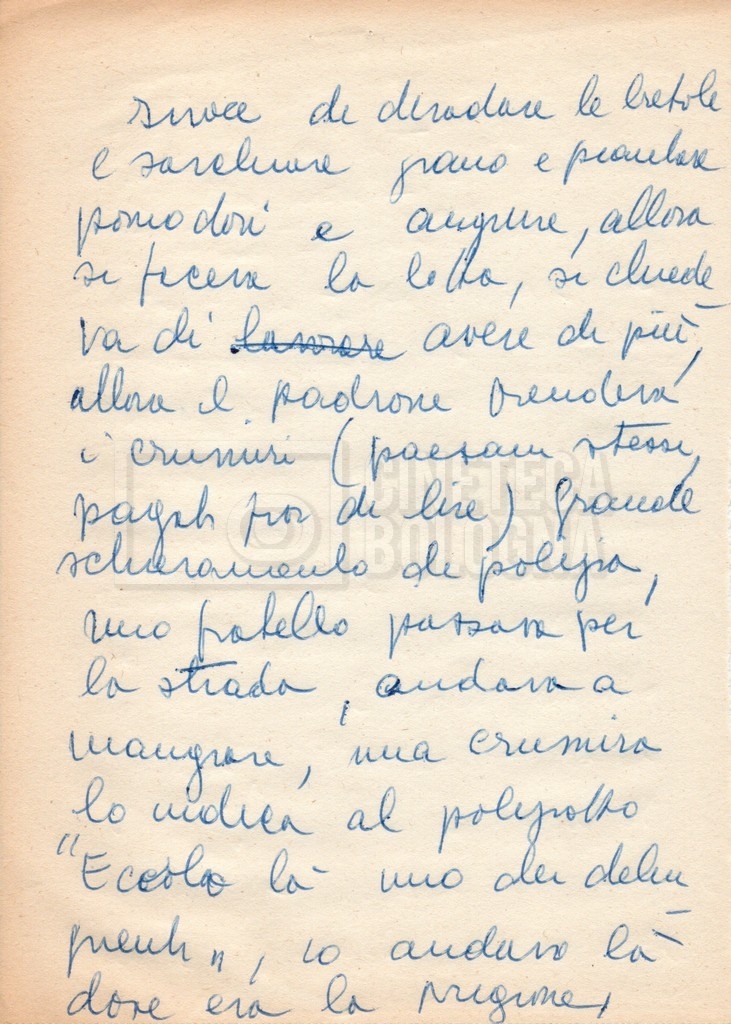 invece di diradare le bietole
e sarchiare grano e piantare
pomodori e angurie, allora
si faceva la lotta, si chiede
va di lavorare avere di più,
allora il padrone prendeva
i crumiri (paesani stessi,
pagati più di lire) Grande
schieramento di polizia,
mio fratello passava per
la strada, andava a
mangiare, una crumira
lo indica al poliziotto
"Eccolo là uno dei delin
quenti", io andavo là
dove era la prigione,
CINETECA
BOLOGNA